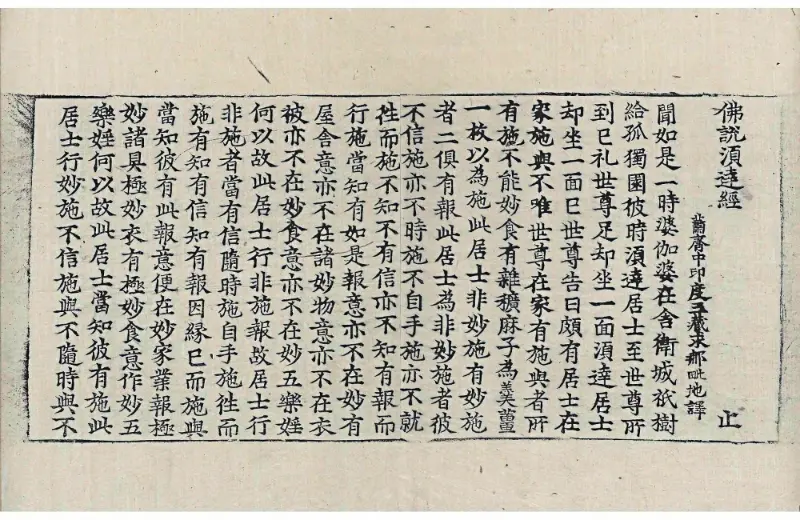 佛説湏達經 止
蕭齊中印度三藏求那毗地譯
聞如是一時婆伽婆在舍衛城祇樹
給孤獨園彼時湏達居士至世尊所
到已礼世尊足却坐一面湏達居士
却坐一面已世尊告曰頗有居士在
家施與不唯世尊在家有施與者所
有施不能妙食有雜穬麻子為羹薑
一枚以為施此居士非妙施有妙施
者二俱有報此居士為非妙施者彼
不信施亦不時施不自手施亦不就
徃而施不知不有信亦不知有報而
行施當知有如是報意亦不在妙有
屋舍意亦不在諸妙物意亦不在衣
被亦不在妙食意亦不在妙五樂婬
何以故此居士行非施報故居士行
非施者當有信隨時施自手施徃而
施有知有信知有報因緣已而施與
當知彼有此報意便在妙家業報極
妙諸具極妙衣有極妙食意作妙五
樂婬何以故此居士當知彼有施此
居士行妙施不信施與不隨時與不